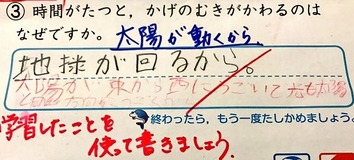 ③ 時間がたつと，かげのむきがかわるのは
なぜですか。太陽が動くから。
地球が回るから。
太陽が東から西にうごいて
学習したことを
終わったら，もう一度たしかめましょう。
使って書きましょう。